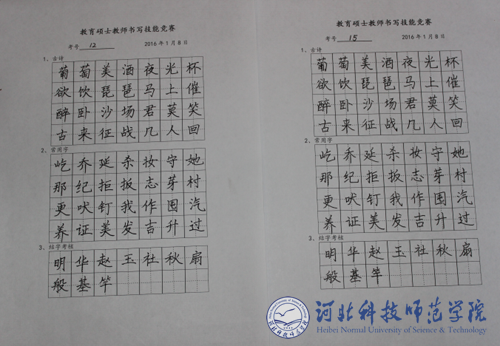 教育硕士教师书写技能竞赛
考号 12 2016年1月8日
1、古诗
葡萄美酒夜光杯
欲饮琵琶马上催
醉卧沙场君莫笑
古来征战几人回
2、常用字
屹乔延杀妆守她
那纪拒扳志芽村
更吠钉我作围汽
养证美发吉升过
3、
明华赵玉社秋扇
般基竿
教育硕士教师书写技能竞赛
考号 15 2016年1月8日
1、古诗
葡萄美酒夜光杯
欲饮琵琶马上催
醉卧沙场君莫笑
古来征战几人回
2、常用字
屹乔延杀妆守她
那纪拒扳志芽村
更吠钉我作围汽
养证美发吉升过
3、
明华赵玉社秋扇
般基竿
河北科技师范学院
Hebei Normal University of Science & Technology